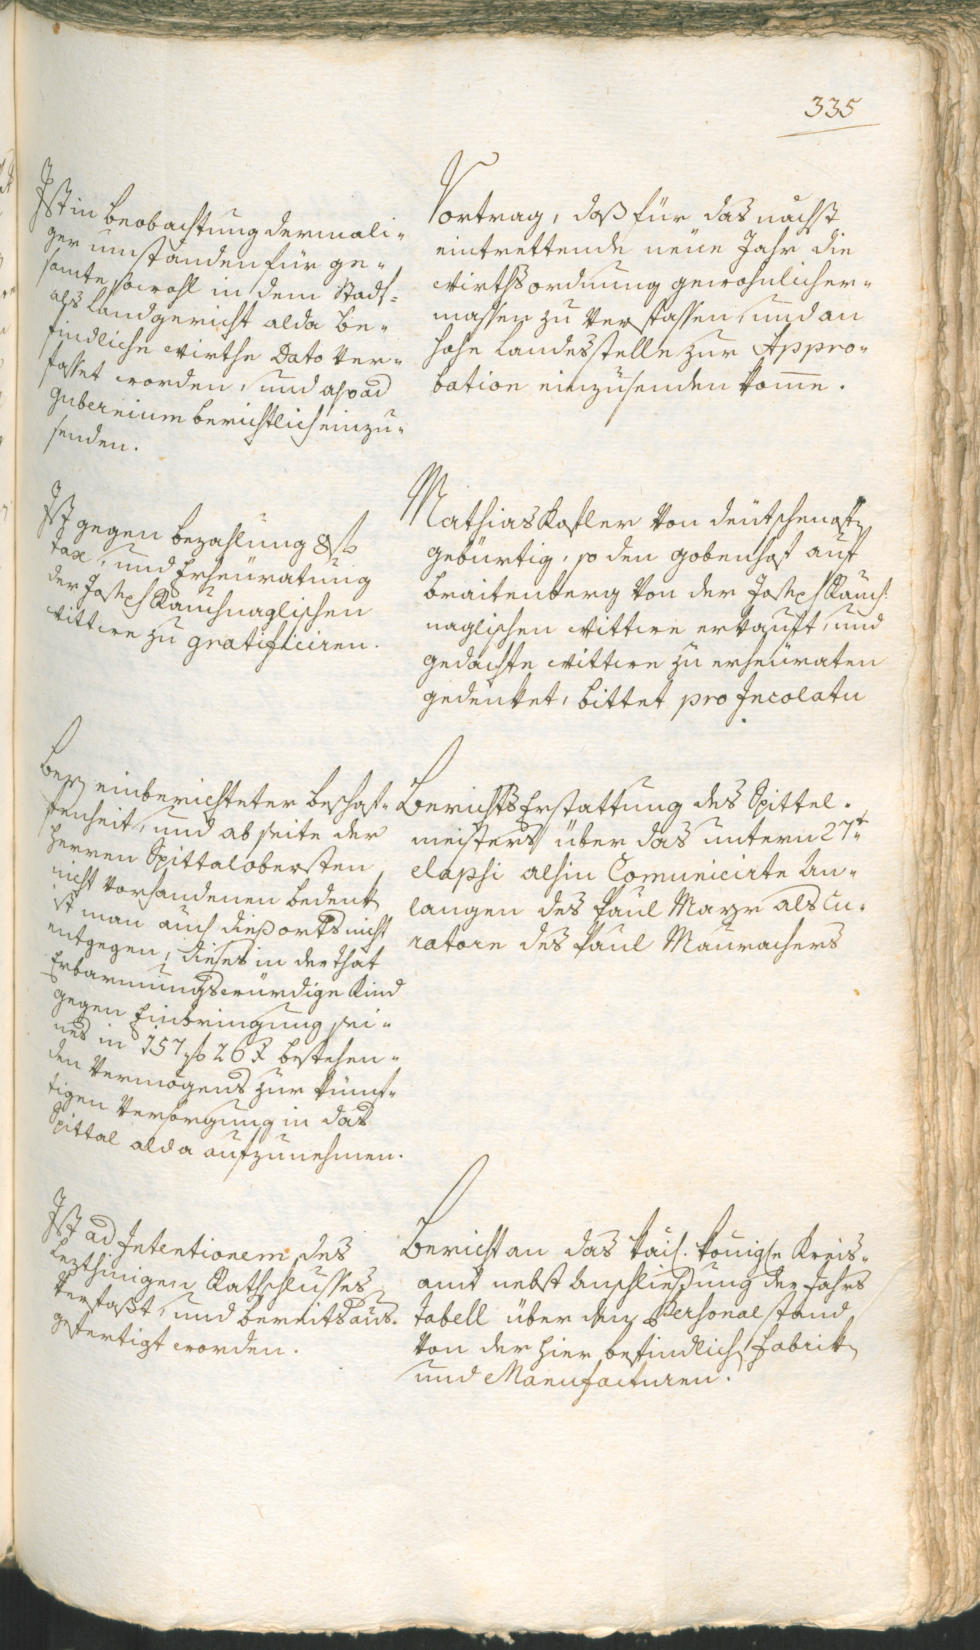 335
Ist in Beobachtung dermali-
ger umständen für ge-
samte sowohl in dem Stadt-
als Landgericht alda be-
findliche Wirthe Dato ver-
fasset worden, und ad
gubernium berichtlich einzu-
senden.
Vortrag, daß für das nächst
eintrettende neüe Jahr die
Wirthsordnung gewöhnlicher-
massen zu verfassen, und an
hohe Landesstelle zur Appro-
bation einzusenden kom̅e.
Ist gegen bezahlung 8 f
tax, und Erheüratung
der Joseph Rauchnaglischen
Wittwe zu gratificiren.
Mathias Kofler von deütschenofen
gebürtig, so den gobenhof auf
Breitenberg von der Joseph Rauch-
naglischen Wittwe erkauft, und
gedachte Wittwe zu erheüraten
gedenket, bittet pro Incolatu
Bey einberichteter beschaf-
fenheit, und ab seite der
Herren Spittalobersten
nicht vorhandenen bedenk
ist man auch diesorts nicht
entgegen, dieses in der that
Erbarmungswürdige Kind
gegen Einbringung sei-
nes in 157 f 26 X bestehen-
den Vermögens zur künf-
tigen Versorgung in das
Spittal alda aufzunehmen.
Berichts Erstattung des Spittel-
meisters über das untern 27t
elapsi alhin Comunicirte An-
langen des Paul Mayr als Cu-
ratore des Paul Maurachers
Ist ad Intentionem des
letzthinigen Rathschlusses
verfaßt, und bereits aus-
gefertigt worden.
Bericht an das kais. königle Kreis-
amt nebst anschließung der Jahrs
tabell über den Personalstand
von der hier befindlich Fabriken
und Manufacturen.